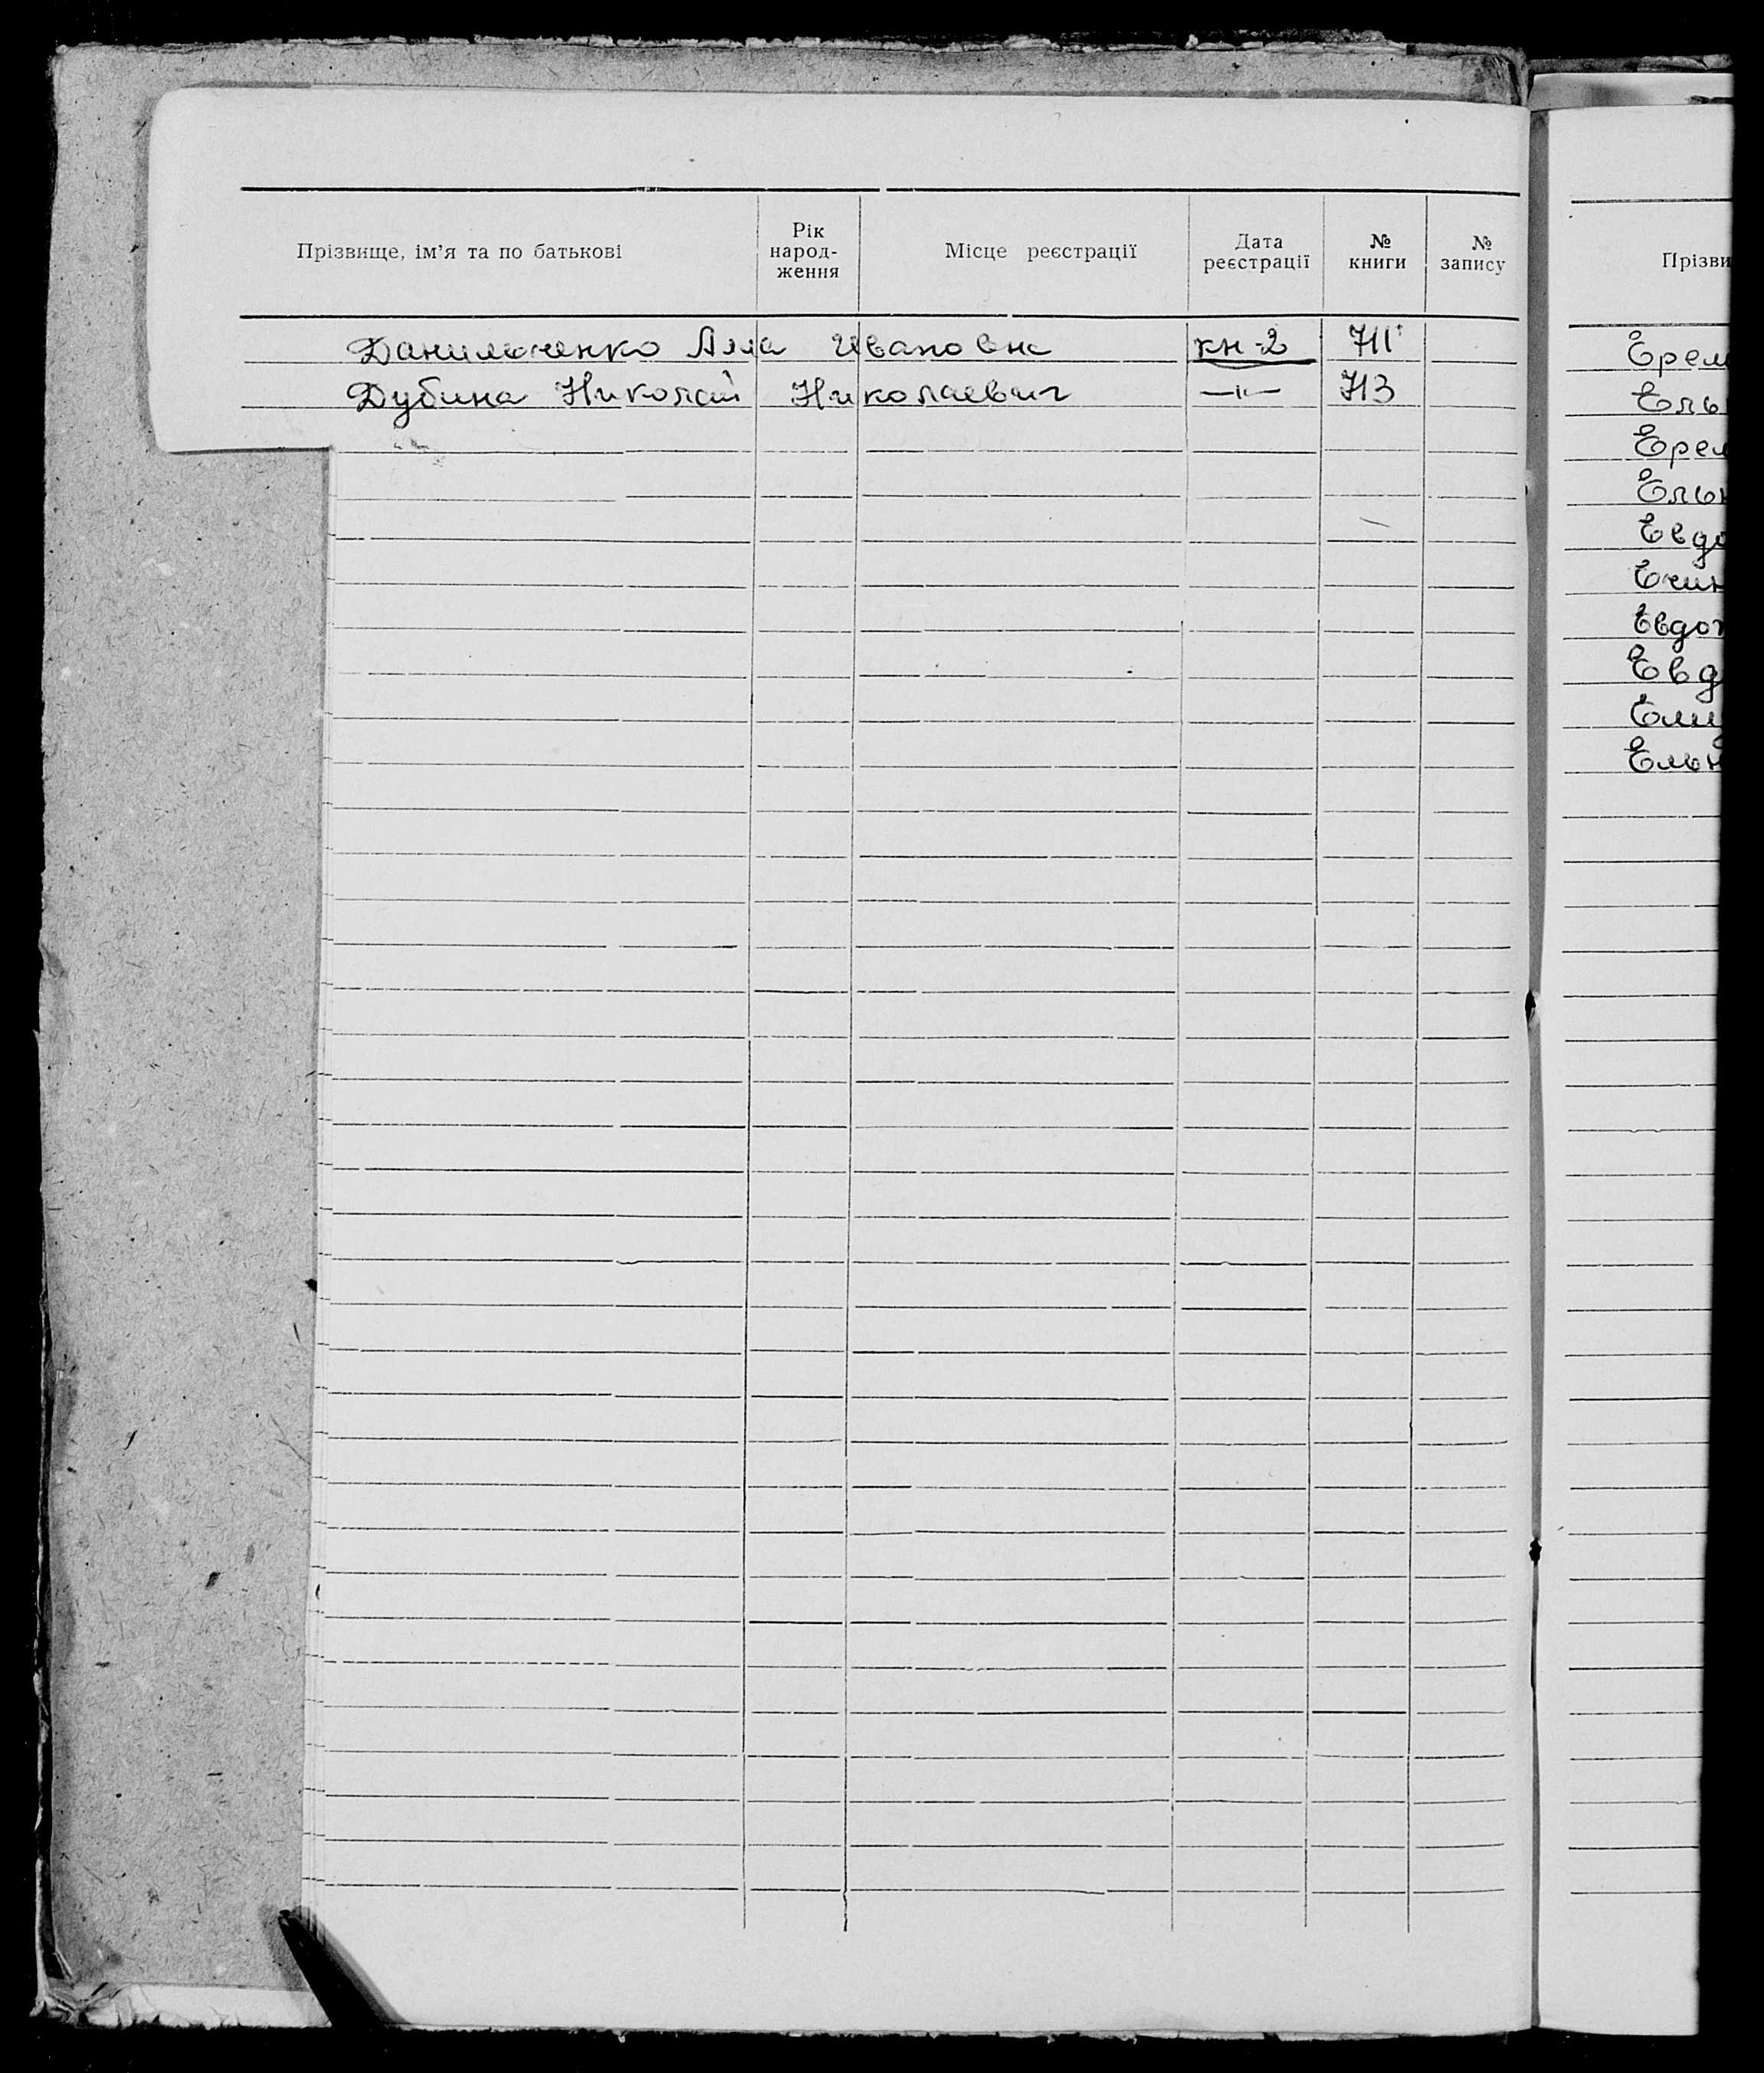 Прізвище, ім'я та по батькові Рік народ-ження Місце реєстрації Дата реєстрації № книги № запису
Данильченко Алла Ивановна кн-2 711
Дубина Николай Николаевич —"— 713
Прізви
Ерем
Ель
Ерем
Ельн
Евдо
Евдо
Евд
Ельн